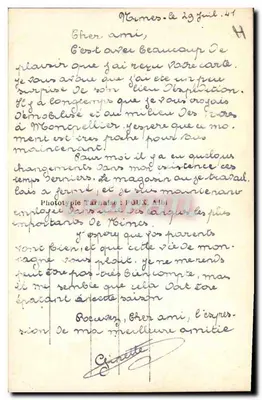 Nimes - le 29 Juil. 41
Cher ami,
C'est avec beaucoup de
plaisir que j'ai reçu votre carte.
Je vous avoue que j'ai été un peu
surprise de son lieu d'expédition.
Il y a longtemps que je vous croyais
démobilisé et au milieu des
à Montpellier. J'espère que ce mo-
ment est très proche pour vous
maintenant
Pour moi il y a eu quelques
changements dans mon existence ces
temps derniers. Le magasin où je travail-
lais a fermé, et je suis maintenant
employée dans une des plus
importantes de Nimes.
J'espère que vos parents
vont bien, et que cette vie de mon-
tagne vous plait. Je me rends
peut être pas très bien compte, mais
il me semble que cela doit être
épatant à cette saison
Recevez, Cher ami, l'expres-
sion de ma meilleure amitié
Ginette